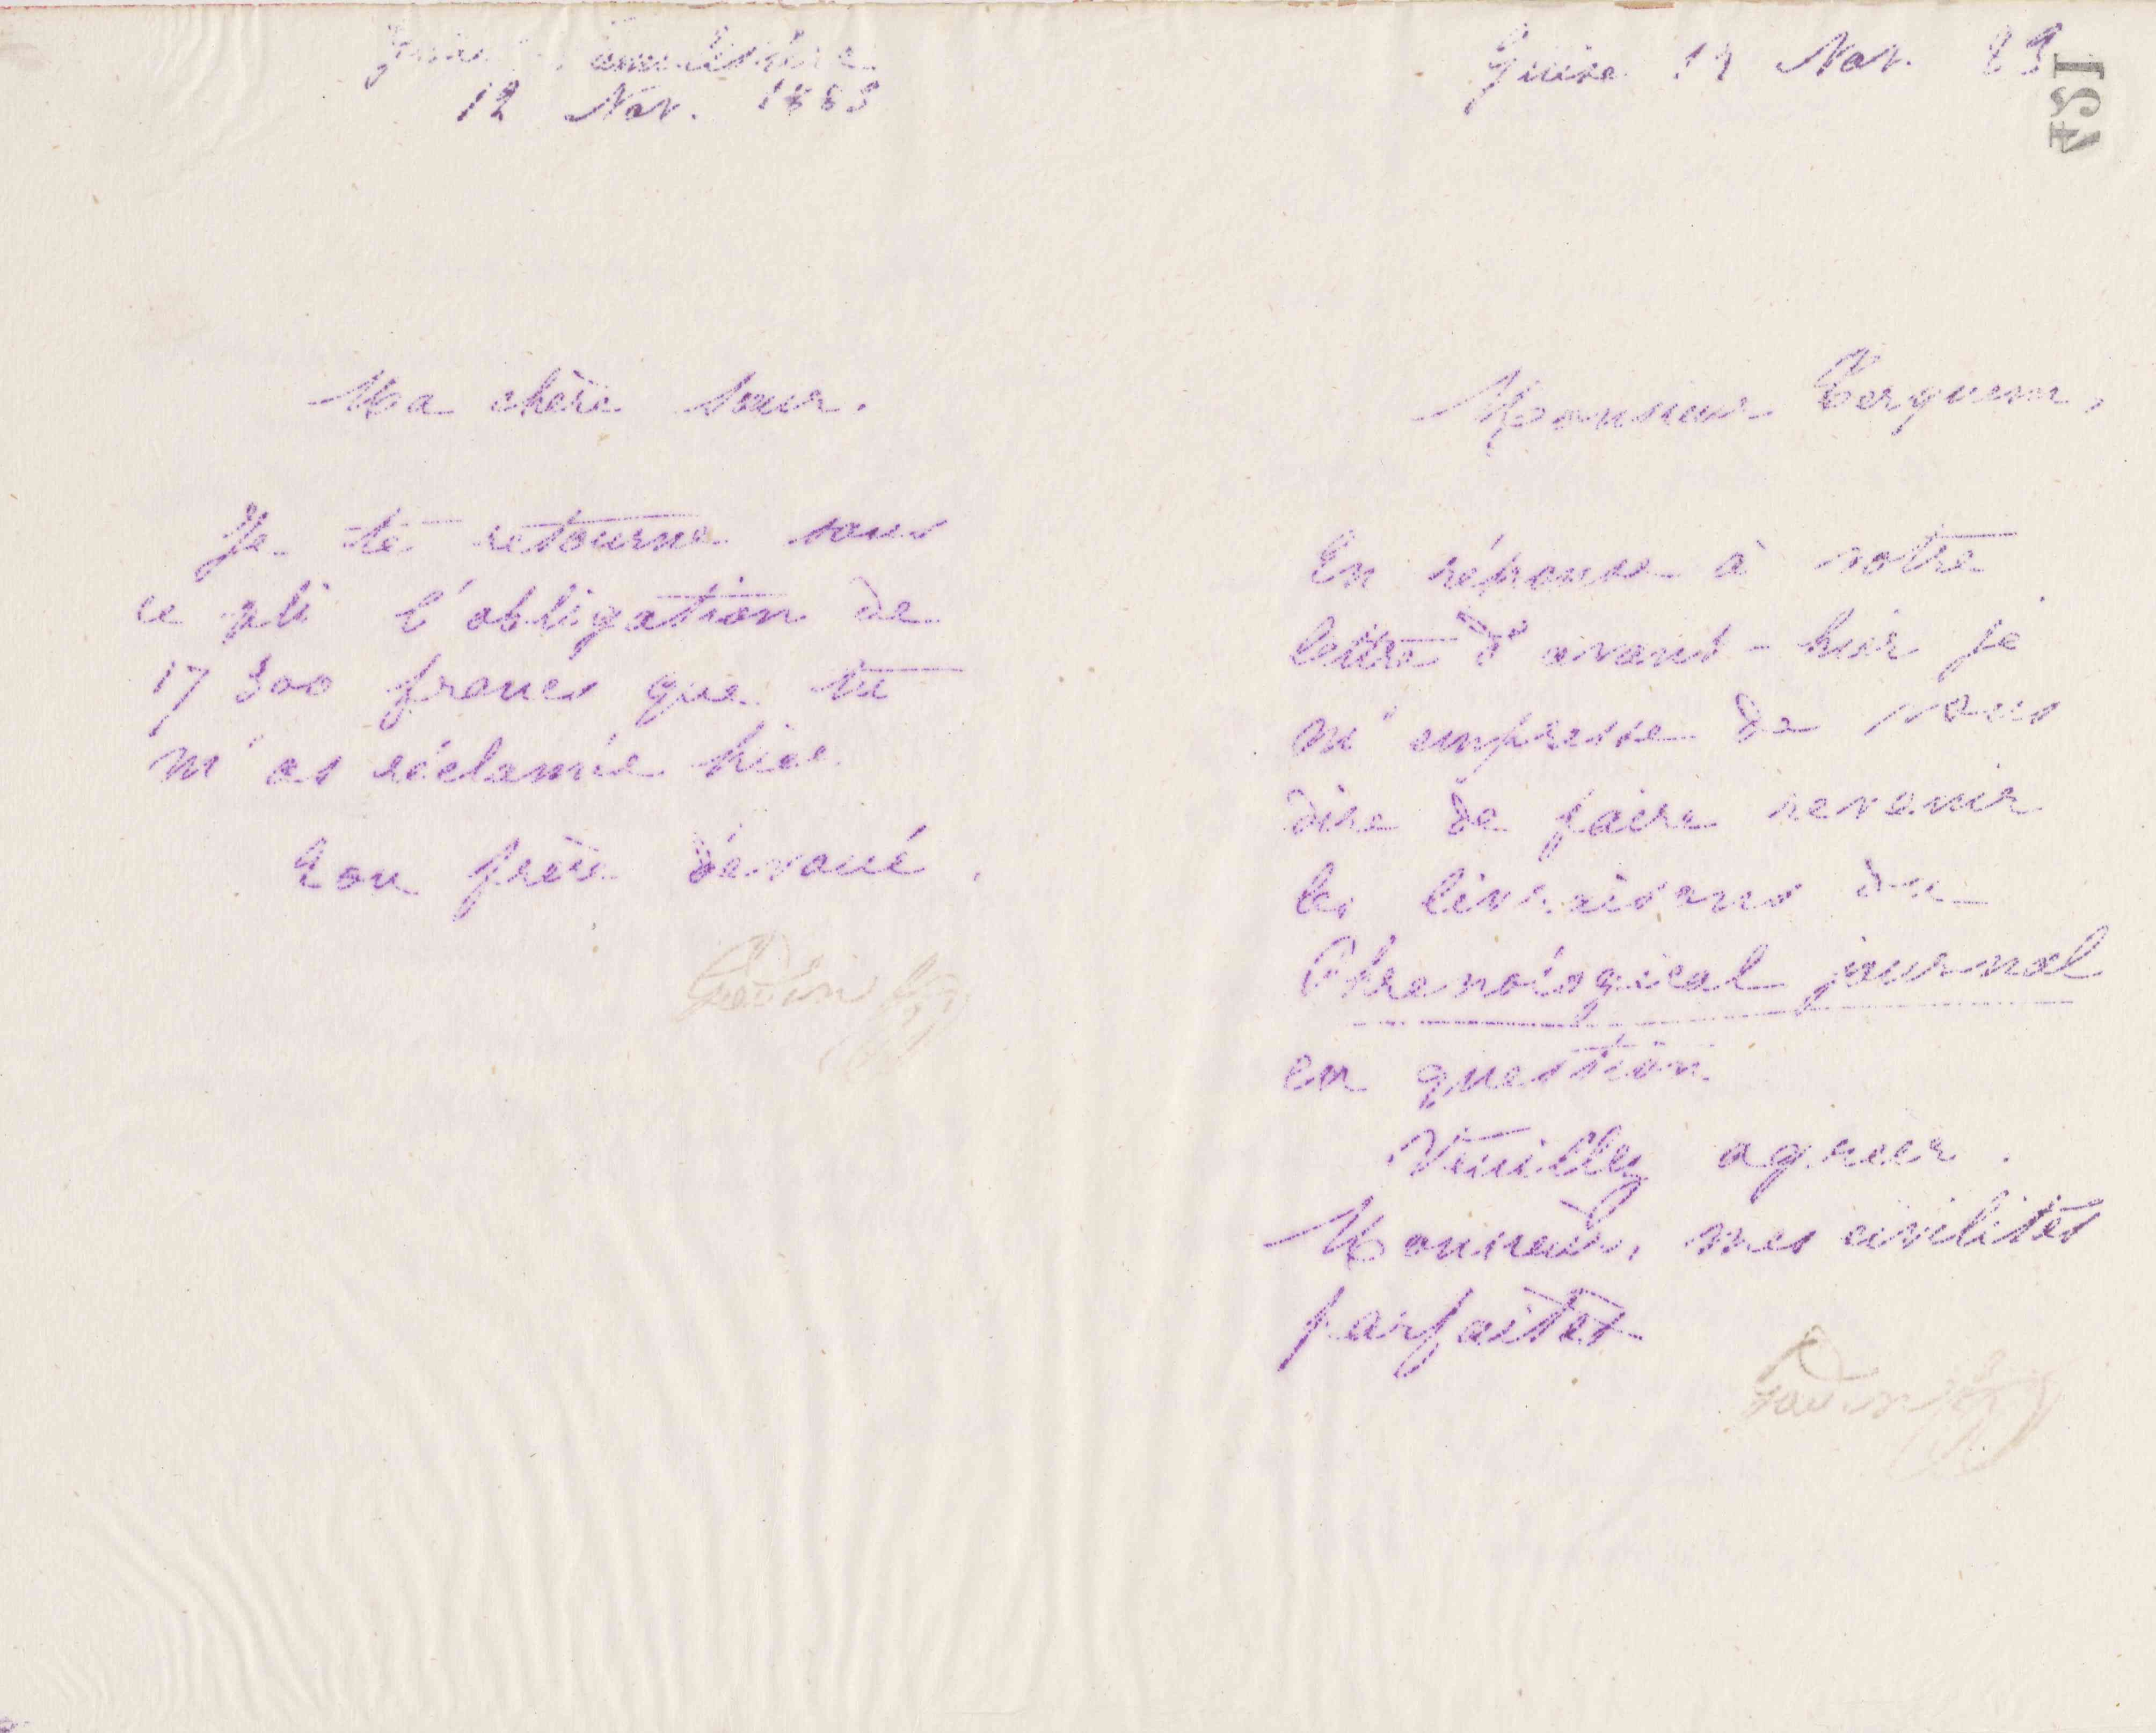 Guise Familistère
12 Nov. 1883
Ma chère sœur.
Je te retourne sous
ce pli l'obligation de
17 300 francs que tu
m'as réclamée hier.
Ton frère dévoué.
Godin
Guise 12 Nov. 83
154
Monsieur Terquem,
En réponse à votre
lettre d'avant-hier je
m'empresse de vous
dire de faire revenir
les livraisons du
Phrenological journal
en question
Veuillez agréer.
Monsieur, mes civilités
parfaites
Godin